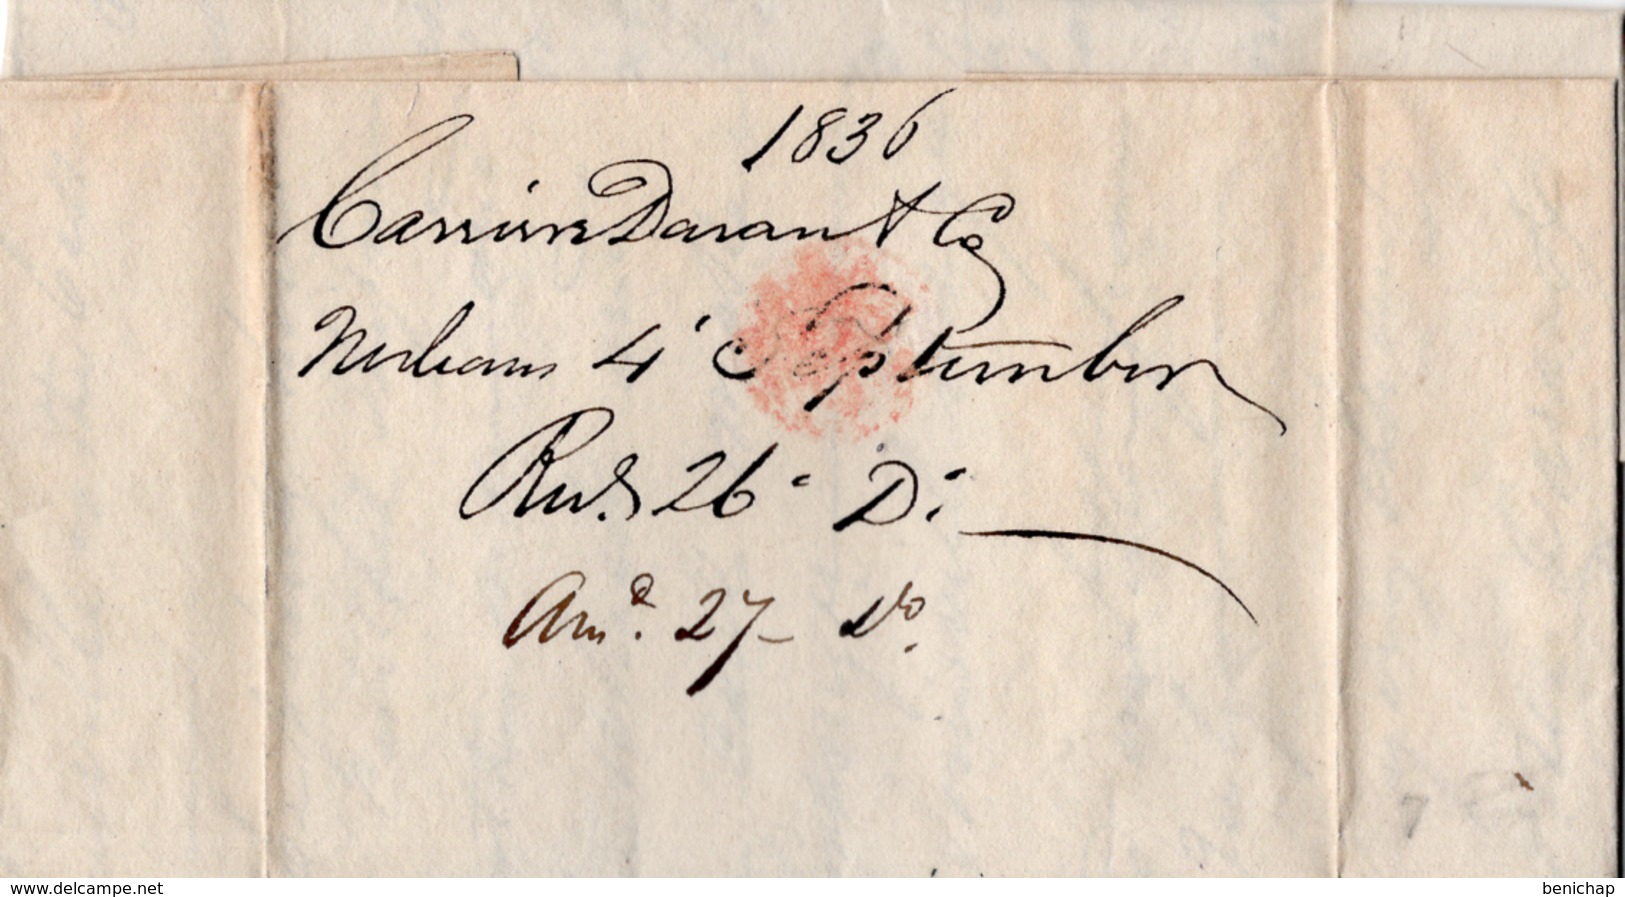 1836
Carriere Darant & Co
N Orleans 4' September
Recd. 26" Do
Ansd. 27 - Do.
7
www.delcampe.net
benichap